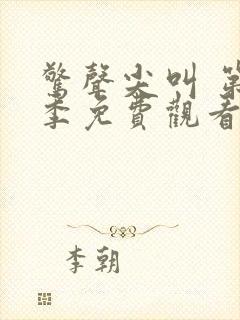 驚聲尖叫 第
季免費觀看
李朝